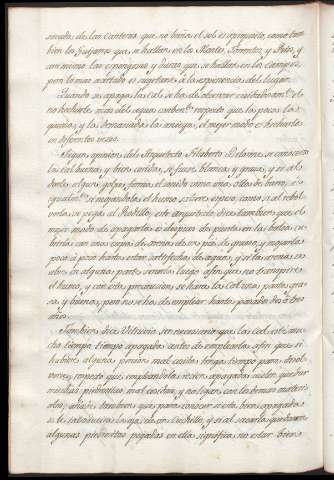 sacada, de las canteras que no baña el sol es aproposito, como tam
bien los Guijarros que se hallan en los Montes, Torrentes, y Rios, y
asi mismo las esponjosas y duras que se hallan en los campos,
pero lo mas acertado es sujetarse à la experiencia del lugar.
Quando se apaga la cal se ha de observar cuidadosam.te el
no hecharle mas del agua combeni.te respecto que la poca la
quema, y la demasiada la aniega, el mejor modo es hecharla
en diferentes veces.
Segun opinion del Arquitecto Filiberto Delorme se conocera
la cal buena y bien cocida, si fuese blanca y grasa, y si al
darle algun golpe formase el sonido como una olla de barro, si
igualm.te si mojandola el humo saliere espeso, como si al rebol
verla se pega al Rodillo; este arquitecto dice tambien que el
mejor modo de apagarla es despues de puesta en la balsa cu
brirla con una capa de arena de un pie de grueso, y mojarla
poco à poco hasta estar satisfecha de agua, y si la arena se
abre en alguna parte cerrarla luego afin que no transpire
el humo, y con esta precaucion se hara la Cal una pasta gra
sa, y buena, pero no se ha de emplear hasta pasados dos ò tres
años.
Tambien dice Vitruvio ser necesario que la cal esté mu
cho tiempo apagada antes de emplearla afin que si
hubiere alguna piedra mal cosida tenga tiempo para disol
verse, respecto que empleandola recien apagada suelen quedar
muchas piedrecitas mal cositas, y no ligan con los demas materi
ales; añade tambien que para conocer si esta bien apagada
se le introducira en ella un cuchillo, y si al sacarlo quedaren
algunas piedrecitas pegadas en ella significa no estar bien